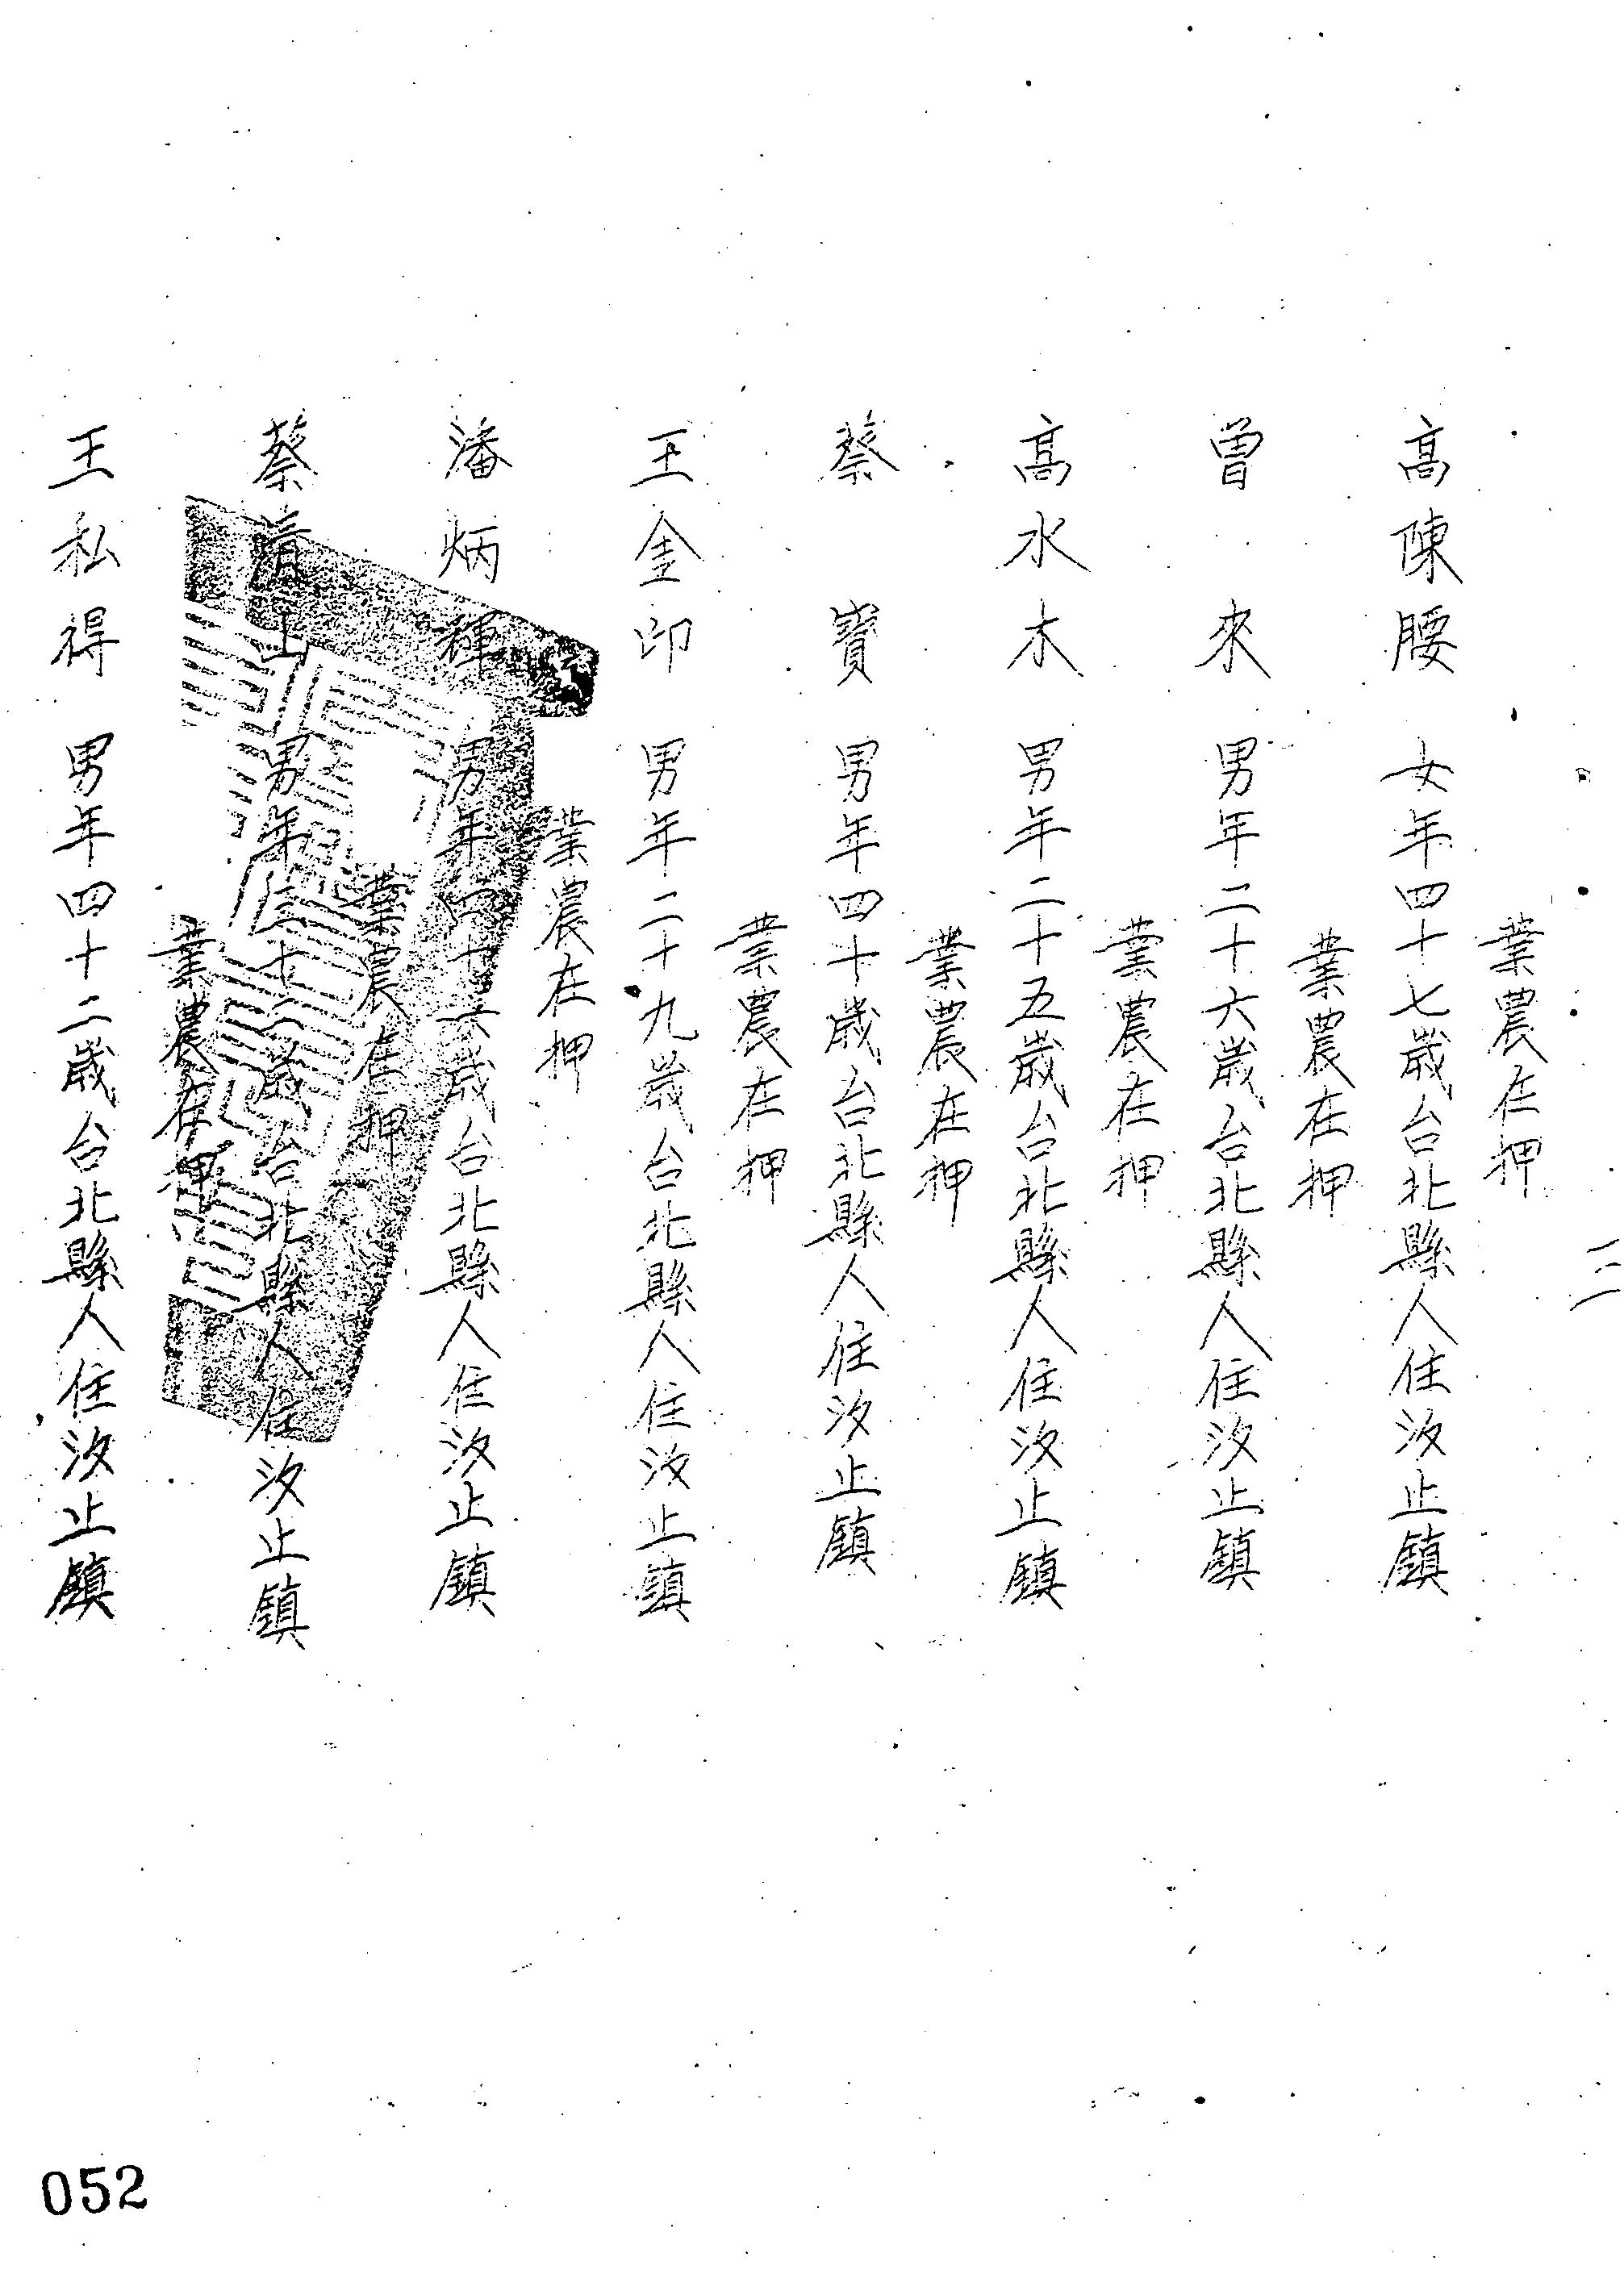 業農在押
高陳腰 女年四十七歲台北縣人住汐止鎮
業農在押
曾來 男年二十六歲台北縣人住汐止鎮
業農在押
高水木 男年二十五歲台北縣人住汐止鎮
業農在押
蔡寶 男年四十歲台北縣人住汐止鎮
業農在押
王金印 男年二十九歲台北縣人住汐止鎮
業農在押
潘炳 男年歲台北縣人住汐止鎮
業農在押
蔡清山 男年歲台北縣人住汐止鎮
業農在押
王私得 男年四十二歲台北縣人住汐止鎮
052